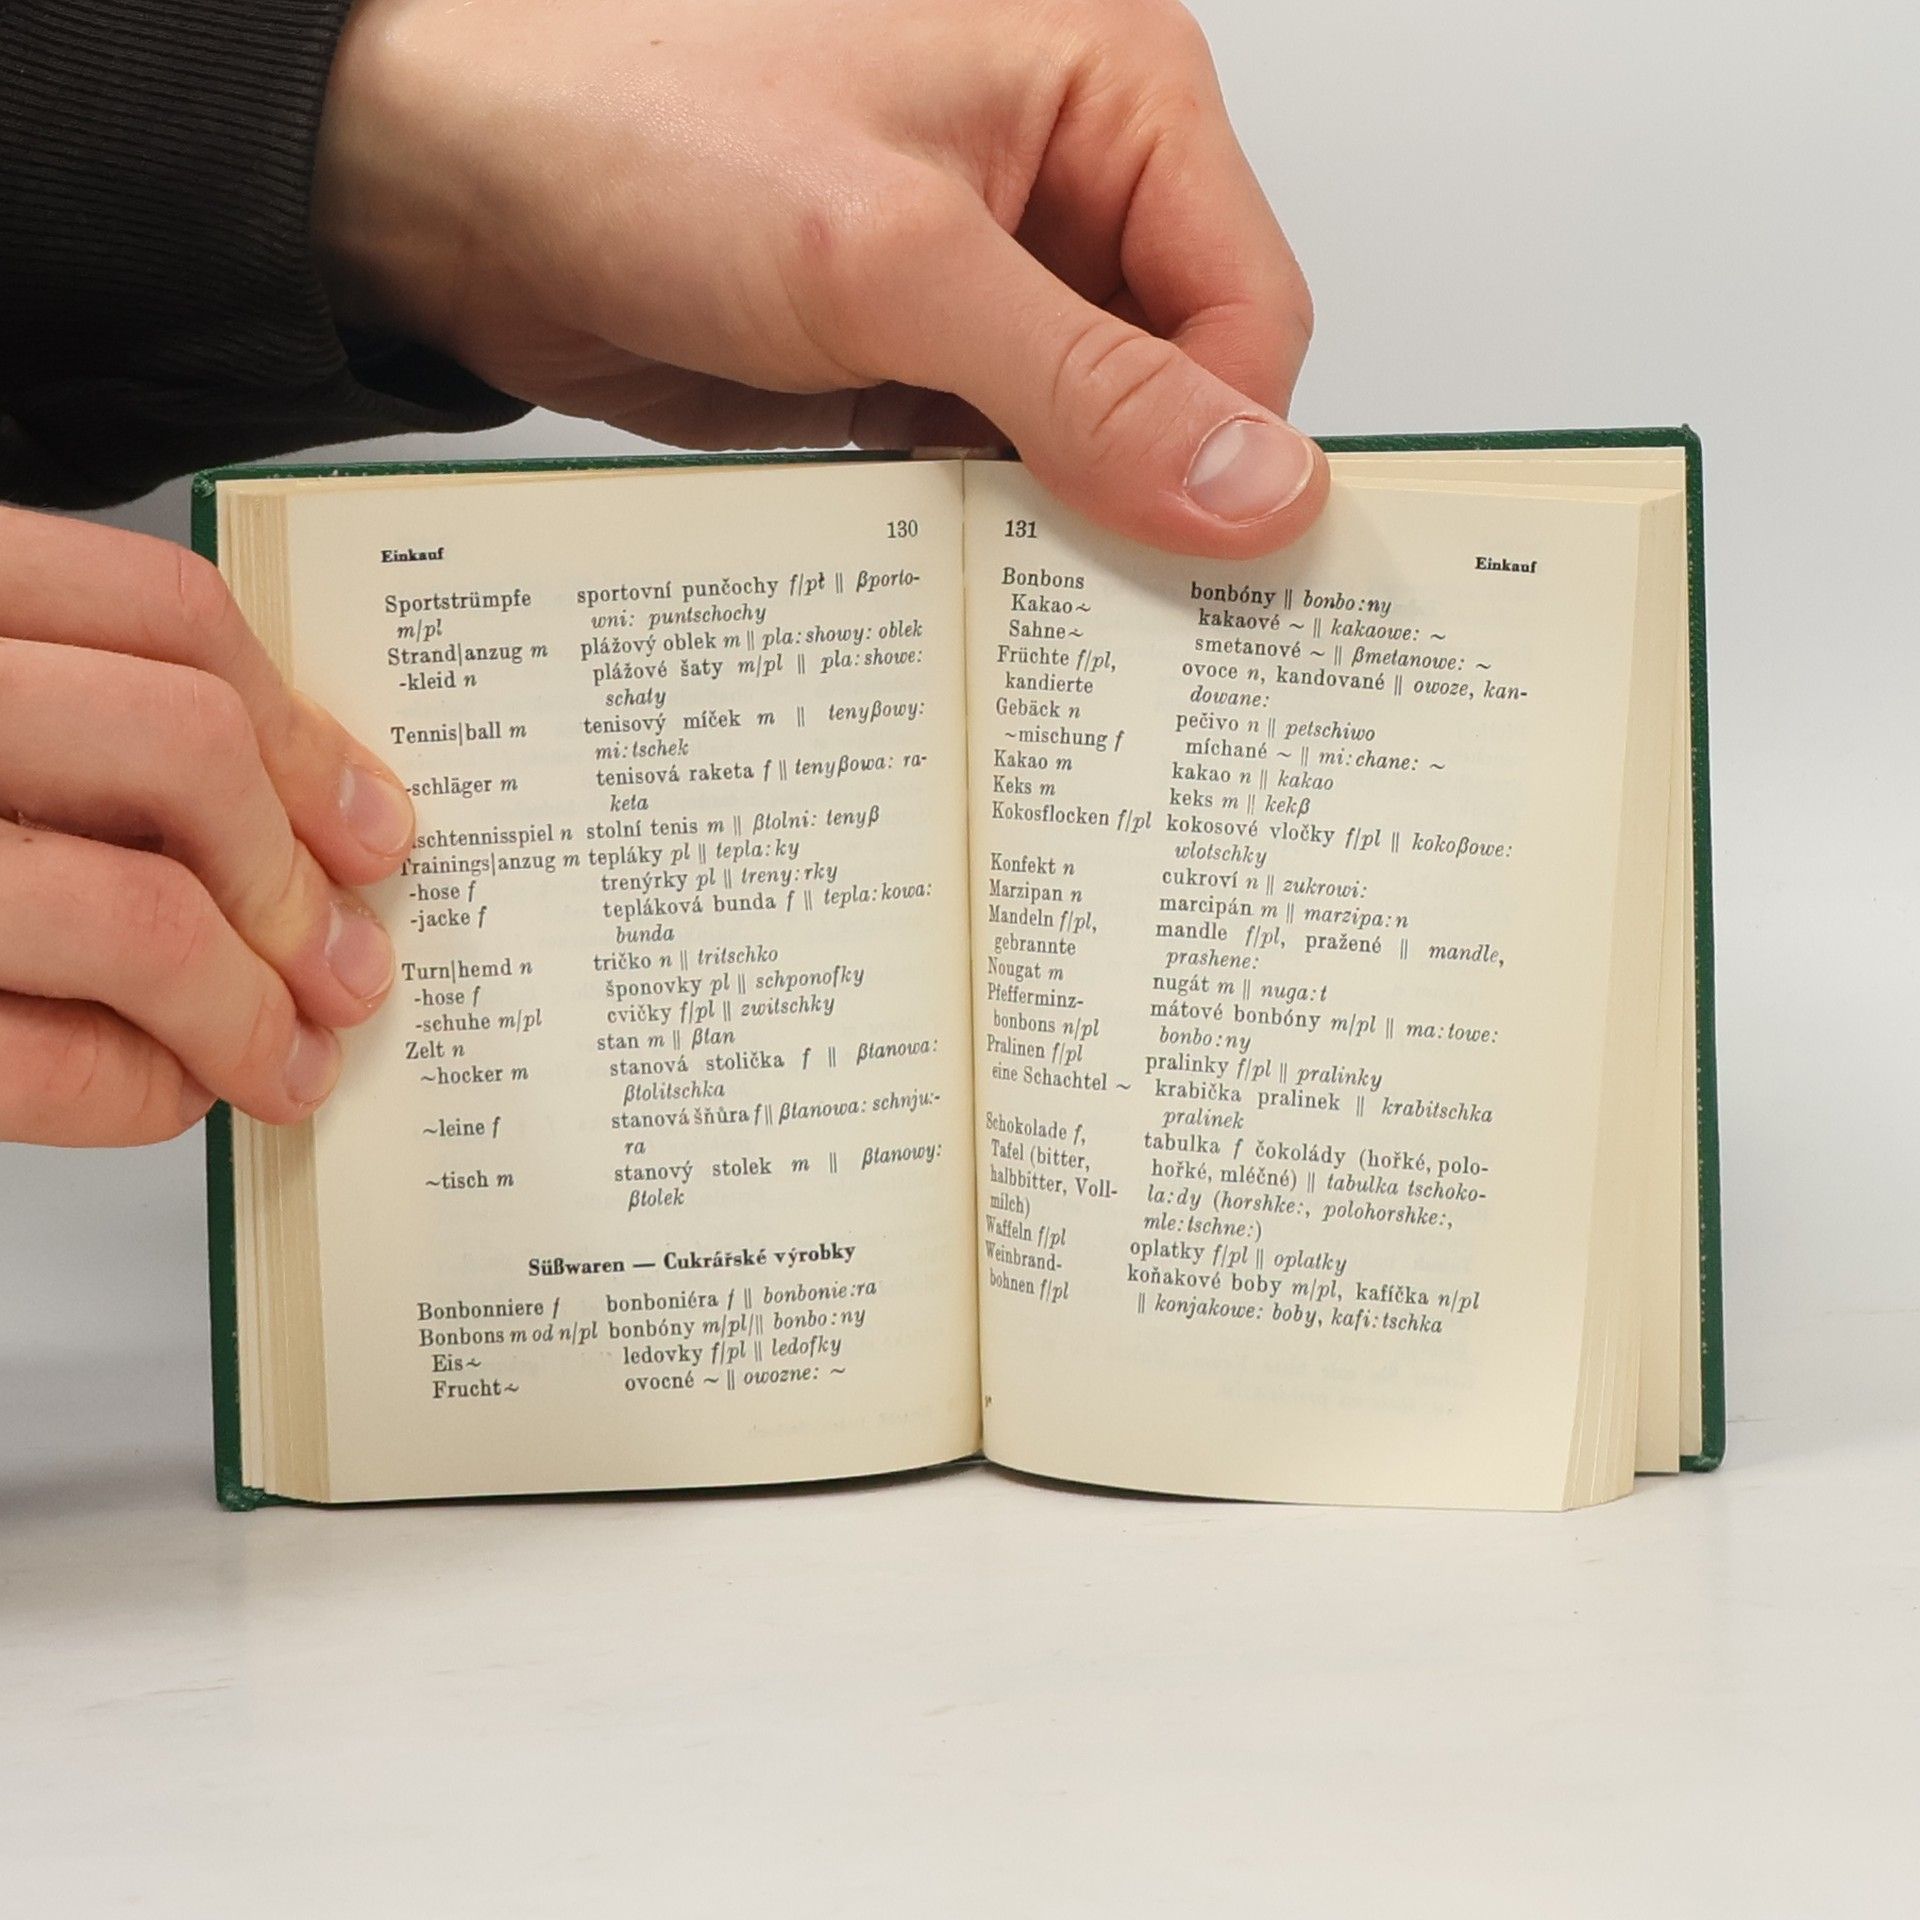 130
Einkauf
Sportstrümpfe sportovní punčochy f/pl || βporto-
m/pl wni: puntschochy
Strand|anzug m plážový oblek m || pla:showy: oblek
-kleid n plážové šaty m/pl || pla:showe:
schaty
Tennis|ball m tenisový míček m || tenyβowy:
mi:tschek
-schläger m tenisová raketa f || tenyβowa: ra-
keta
schtennisspiel n stolní tenis m || βtolni: tenyβ
Trainings|anzug m tepláky pl || tepla:ky
-hose f trenýrky pl || treny:rky
-jacke f tepláková bunda f || tepla:kowa:
bunda
Turn|hemd n tričko n || tritschko
-hose f šponovky pl || schponofky
-schuhe m/pl cvičky f/pl || zwitschky
Zelt n stan m || βtan
~hocker m stanová stolička f || βtanowa:
βtolitschka
~leine f stanová šňůra f || βtanowa: schnju:-
ra
~tisch m stanový stolek m || βtanowy:
βtolek
Süßwaren — Cukrářské výrobky
Bonbonniere f bonboniéra f || bonbonie:ra
Bonbons m od n/pl bonbóny m/pl/|| bonbo:ny
Eis~ ledovky f/pl || ledofky
Frucht~ ovocné ~ || owozne: ~
131
Einkauf
Bonbons bonbóny || bonbo:ny
Kakao~ kakaové ~ || kakaowe: ~
Sahne~ smetanové ~ || βmetanowe: ~
Früchte f/pl, ovoce n, kandované || owoze, kan-
kandierte dowane:
Gebäck n pečivo n || petschiwo
~mischung f míchané ~ || mi:chane: ~
Kakao m kakao n || kakao
Keks m keks m || kekβ
Kokosflocken f/pl kokosové vločky f/pl || kokoβowe:
wlotschky
Konfekt n cukroví n || zukrowi:
Marzipan n marcipán m || marzipa:n
Mandeln f/pl, mandle f/pl, pražené || mandle,
gebrannte prashene:
Nougat m nugát m || nuga:t
Pfefferminz- mátové bonbóny m/pl || ma:towe:
bonbons n/pl bonbo:ny
Pralinen f/pl pralinky f/pl || pralinky
eine Schachtel ~ krabička pralinek || krabitschka
pralinek
Schokolade f, tabulka f čokolády (hořké, polo-
Tafel (bitter, hořké, mléčné) || tabulka tschoko-
halbbitter, Voll- la:dy (horshke:, polohorshke:,
milch) mle:tschne:)
Waffeln f/pl oplatky f/pl || oplatky
Weinbrand- koňakové boby m/pl, kafíčka n/pl
bohnen f/pl || konjakowe: boby, kafi:tschka